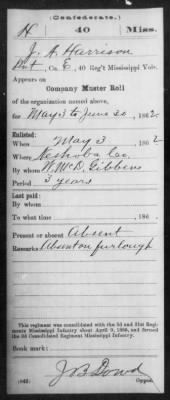 (Confederate.)
H 40 Miss.
J. A. Harrison
Pvt, Co. E, 40 Reg't Mississippi Vols.
Appears on
Company Muster Roll
of the organization named above,
for May 3 to June 30, 1862.
Enlisted:
When May 3, 1862
Where Neshoba Co.
By whom W. McD. Gibbens
Period 3 years
Last paid:
By whom
To what time , 186 .
Present or absent Absent
Remarks: Absent on furlough
This regiment was consolidated with the 3d and 31st Regiments Mississippi Infantry about April 9, 1865, and formed the 3d Consolidated Regiment Mississippi Infantry.
Book mark:
(642) J B Dowd
Copyist.